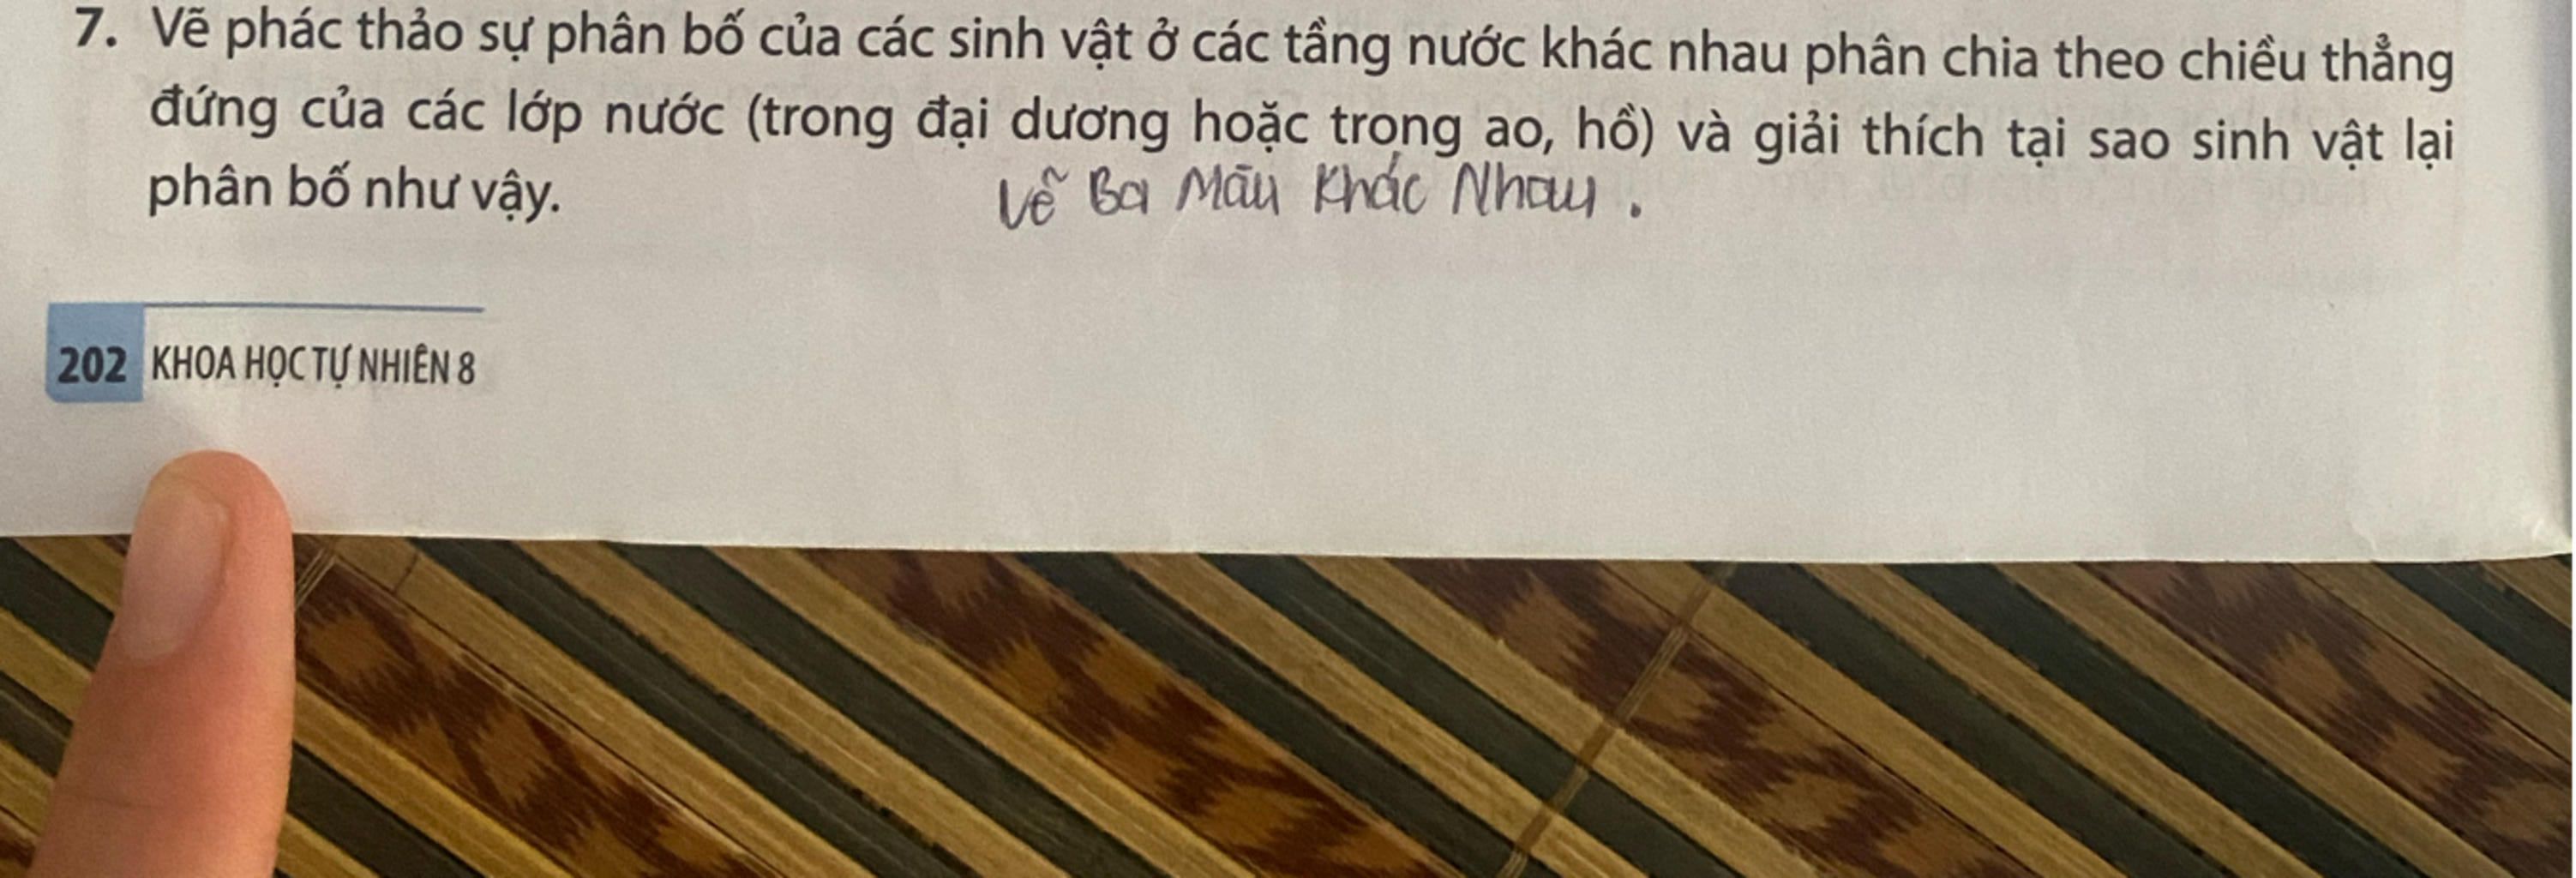 7. Vẽ phác thảo sự phân bố của các sinh vật ở các tầng nước khác nhau phân chia theo chiều thẳng
đứng của các lớp nước (trong đại dương hoặc trong ao, hồ) và giải thích tại sao sinh vật lại
phân bố như vậy.
Vẽ Ba Màu Khác Nhau.
202 KHOA HỌC TỰ NHIÊN 8